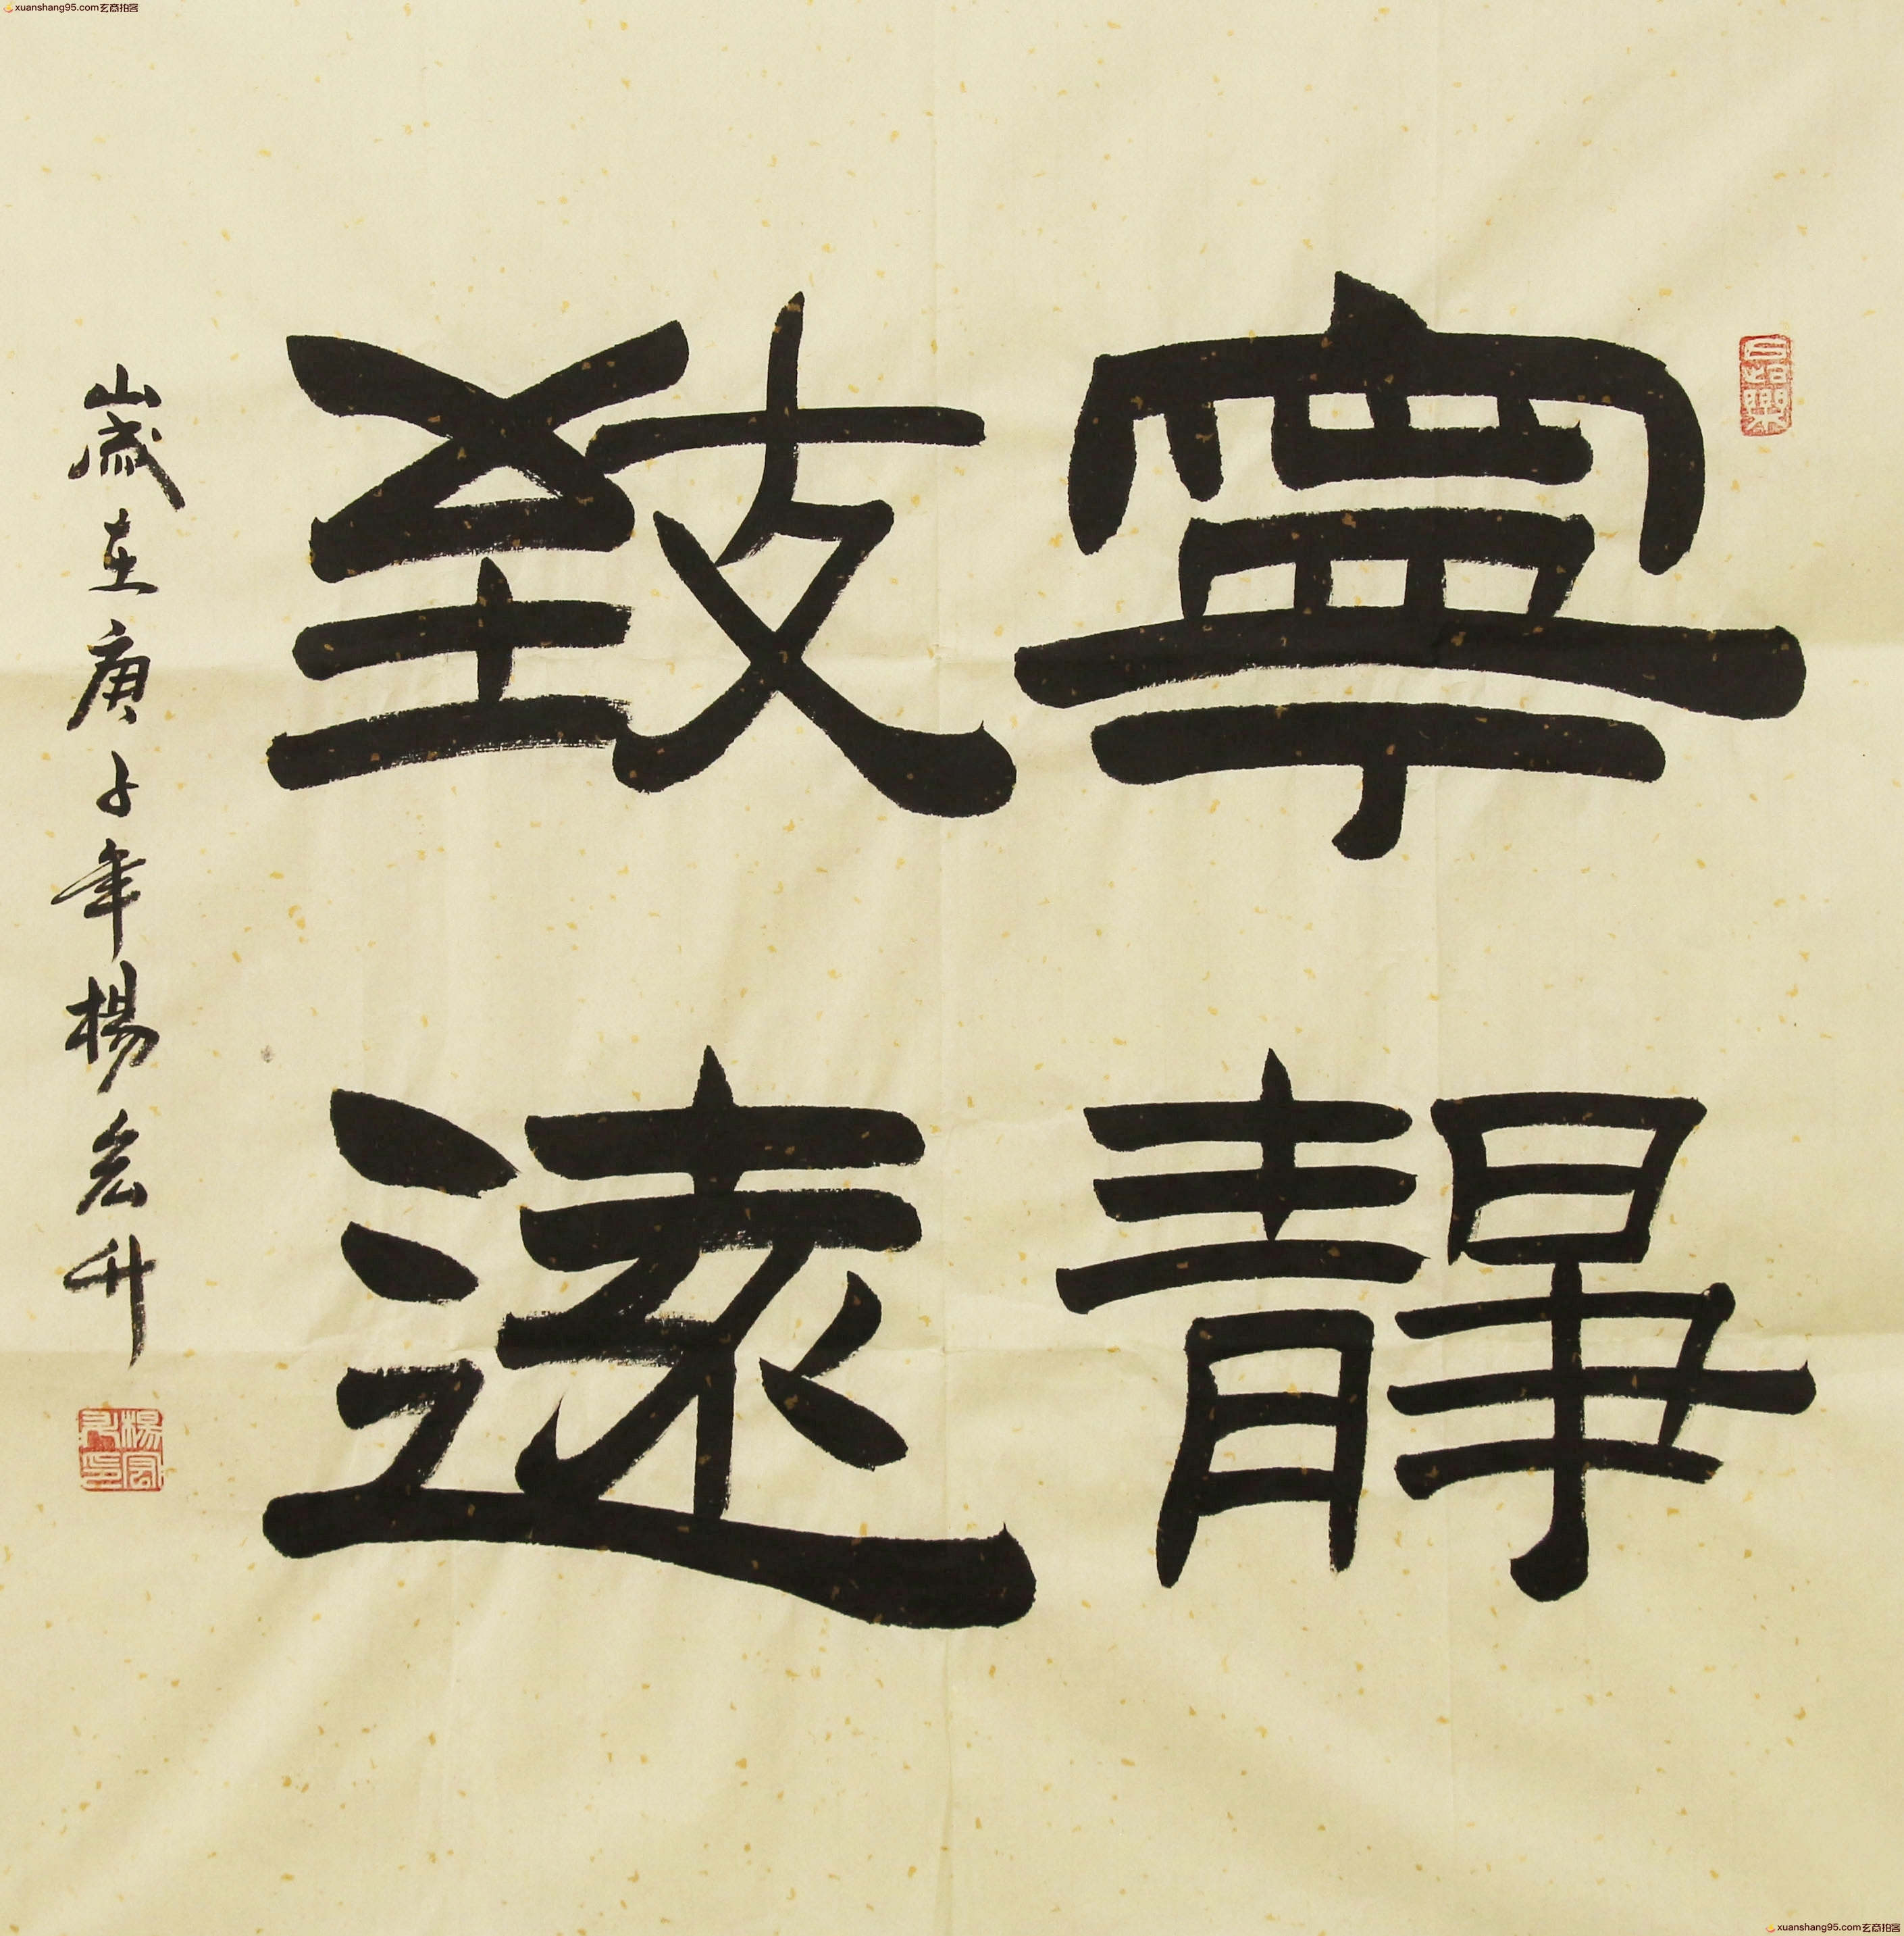 xuanshang95.com玄商拍客
寧靜
致遠
歲在庚子年楊宏升
xuanshang95.com玄商拍客